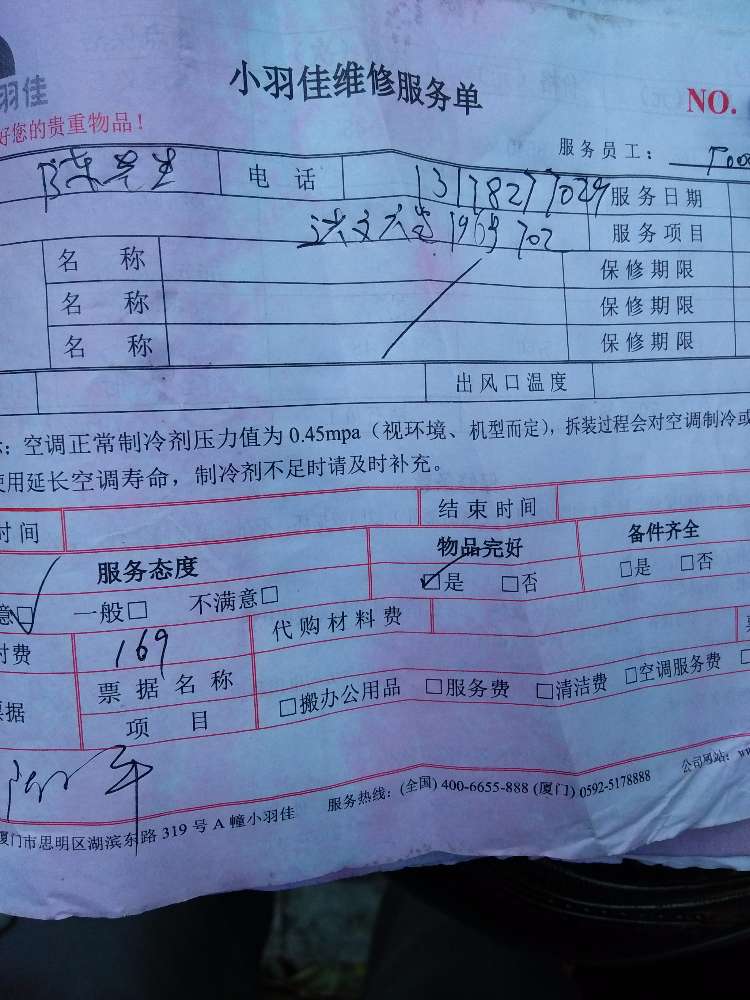 羽佳
小羽佳维修服务单
NO.
好您的贵重物品！
服务员工：
陈先生 电 话 13178277029 服务日期
1969 702 服务项目
名 称 保修期限
名 称 保修期限
名 称 保修期限
出风口温度
：空调正常制冷剂压力值为 0.45mpa（视环境、机型而定），拆装过程会对空调制冷或
使用延长空调寿命，制冷剂不足时请及时补充。
时间 结束时间
服务态度 物品完好 备件齐全
意☑ 一般□ 不满意□ ☑是 □否 □是 □否
付费 169 代购材料费
票据 票据名称 □搬办公用品 □服务费 □清洁费 □空调服务费 □
项 目
服务热线：(全国) 400-6655-888 (厦门) 0592-5178888 公司网站：ww
厦门市思明区湖滨东路 319 号 A 幢小羽佳